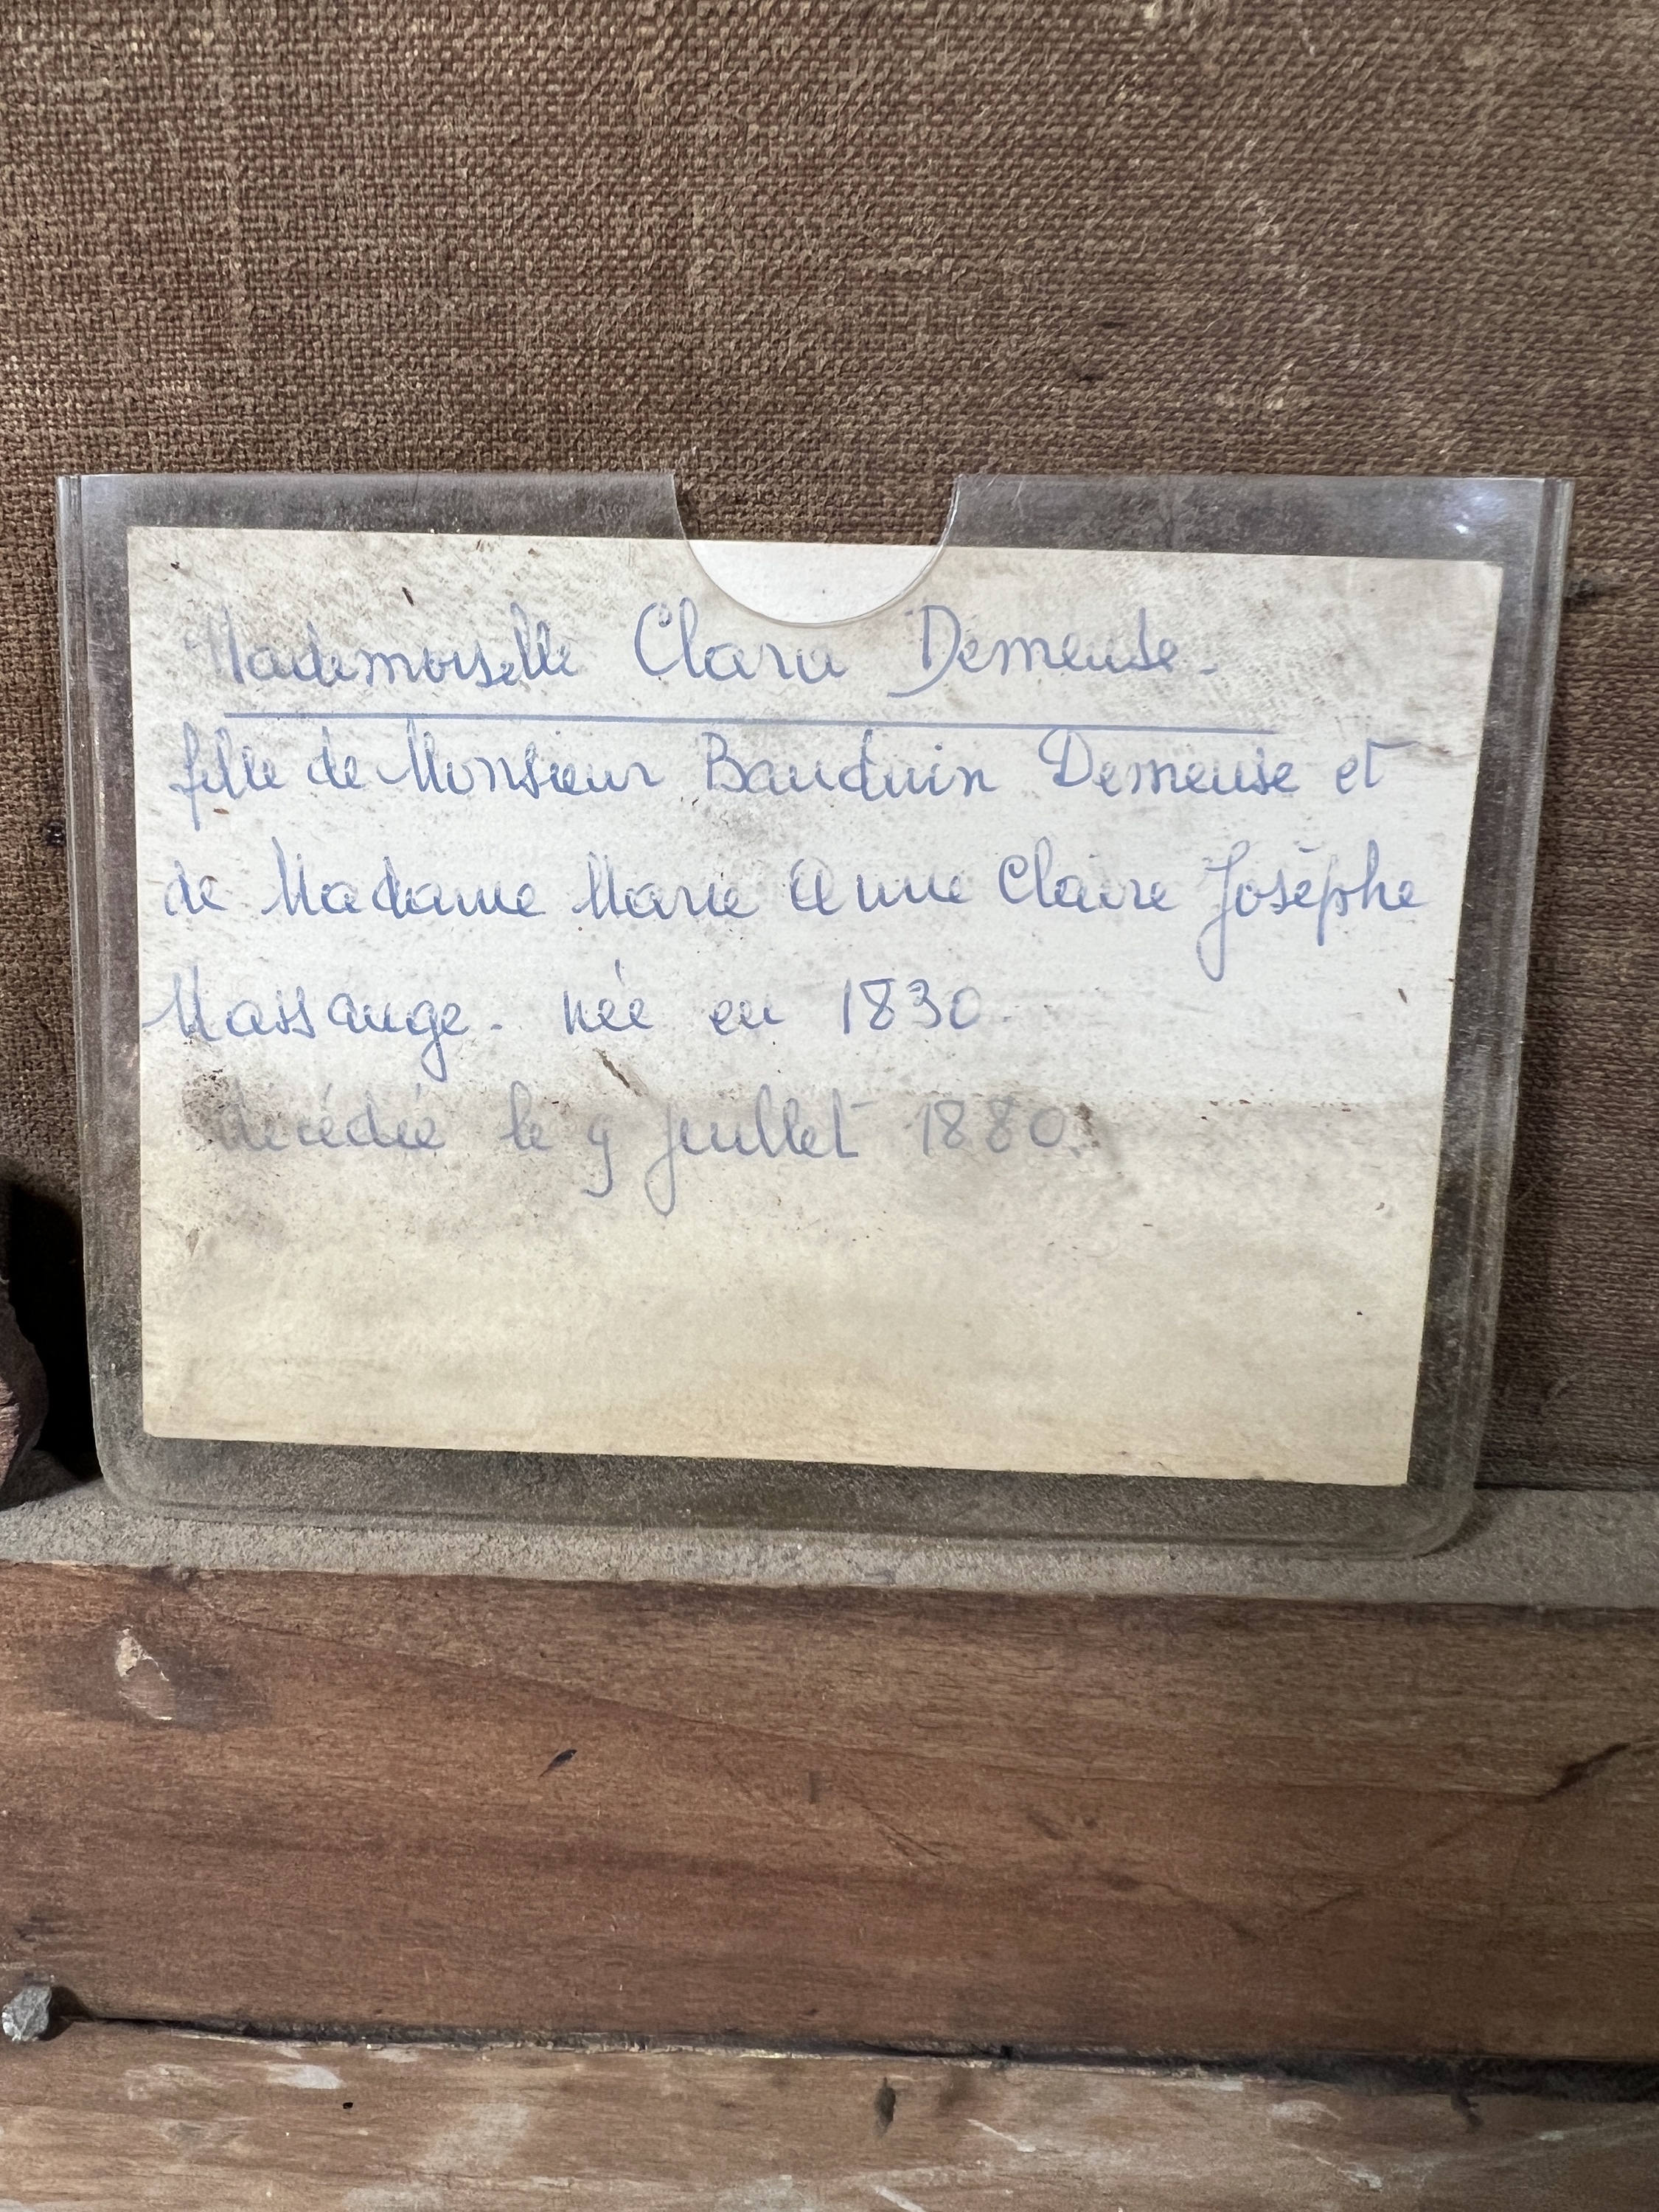 Mademoiselle Clara Demeuse.
fille de Monsieur Bauduin Demeuse et
de Madame Marie Anne Claire Josèphe
Massange. née en 1830.
décédée le 9 juillet 1880.